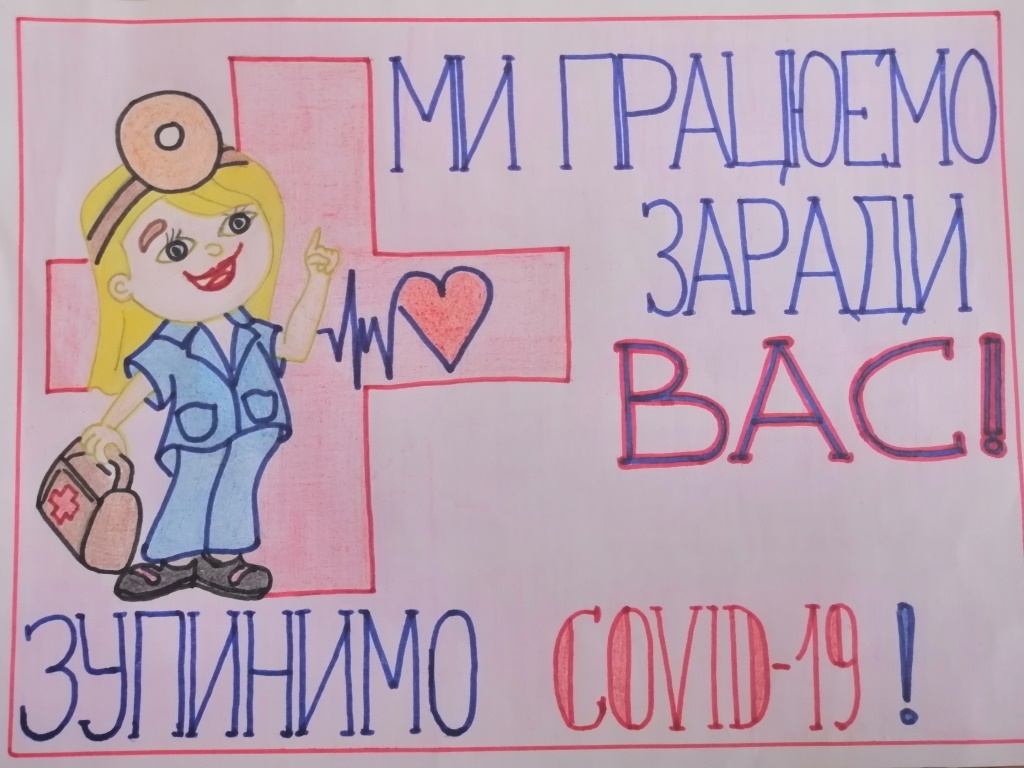 МИ ПРАЦЮЕМО
ЗАРАДИ
ВАС!
ЗУПИНИМО COVID-19!